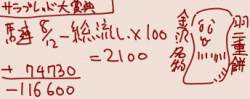 サラブレッド大賞典
馬連 8/12-総流し×100
=2100
+74730
-116600
羽二重餅
金沢名物